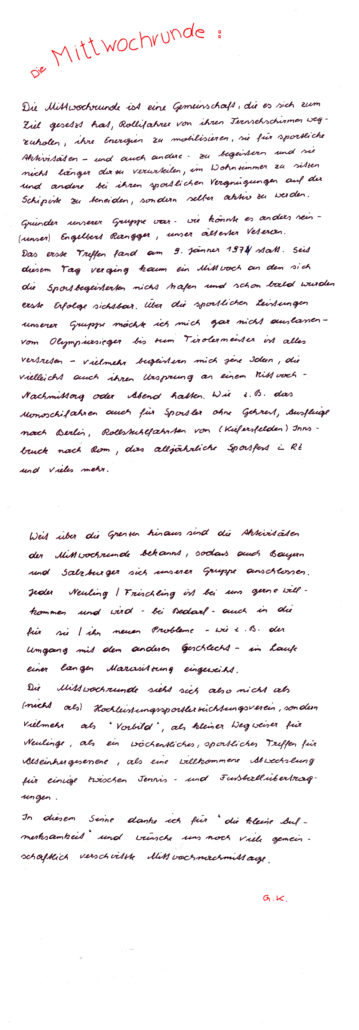 Die Mittwochrunde :
Die Mittwochrunde ist eine Gemeinschaft, die es sich zum
Ziel gesetzt hat, Rollifahrer von ihren Fernsehschirmen weg-
zuholen, ihre Energien zu mobilisieren, sie für sportliche
Aktivitäten - und auch andere - zu begeistern und sie
nicht länger dazu verurteilen, im Wohnzimmer zu sitzen
und andere bei ihren sportlichen Vergnügungen auf der
Schipiste zu beneiden, sondern selber aktiv zu werden.
Gründer unserer Gruppe war - wie könnte es anders sein -
(unser) Engelbert Rangger, unser ältester Veteran.
Das erste Treffen fand am 9. Jänner 1974 statt. Seit
diesem Tag verging kaum ein Mittwoch an den sich
die Sportbegeisterten nicht trafen und schon bald wurden
erste Erfolge sichtbar. Über die sportlichen Leistungen
unserer Gruppe möchte ich mich gar nicht auslassen -
vom Olympiasieger bis zum Tirolermeister ist alles
vertreten - vielmehr begeistern mich jene Ideen, die
vielleicht auch ihren Ursprung an einem Mittwoch -
Nachmittag oder Abend hatten. Wie z.B. das
Monoschifahren auch für Sportler ohne Gehrest, Ausflüge
nach Berlin, Rollstuhlfahrten von (Kiefersfelden) Inns-
bruck nach Rom, das alljährliche Sportfest in RE
und vieles mehr.
Weit über die Grenzen hinaus sind die Aktivitäten
der Mittwochrunde bekannt, sodass auch Bayern
und Salzburger sich unserer Gruppe anschlossen.
Jeder Neuling / Frischling ist bei uns gerne will-
kommen und wird - bei Bedarf - auch in die
für sie / ihn neuen Probleme - wie z.B. der
Umgang mit dem anderen Geschlecht - im Laufe
einer langen Marasitzung eingeweiht.
Die Mittwochrunde sieht sich also nicht als
(nicht als) Hochleistungssportlerzüchtungsverein, sondern
vielmehr als "Vorbild", als kleiner Wegweiser für
Neulinge, als ein wöchentliches, sportliches Treffen für
Alteingesessene, als eine willkommene Abwechslung
für einige zwischen Tennis - und Fussballübertrag-
ungen.
In diesem Sinne danke ich für "die kleine Auf-
merksamkeit" und wünsche uns noch viele gemein-
schaftlich verschwitzte Mittwochnachmittage.
G.K.